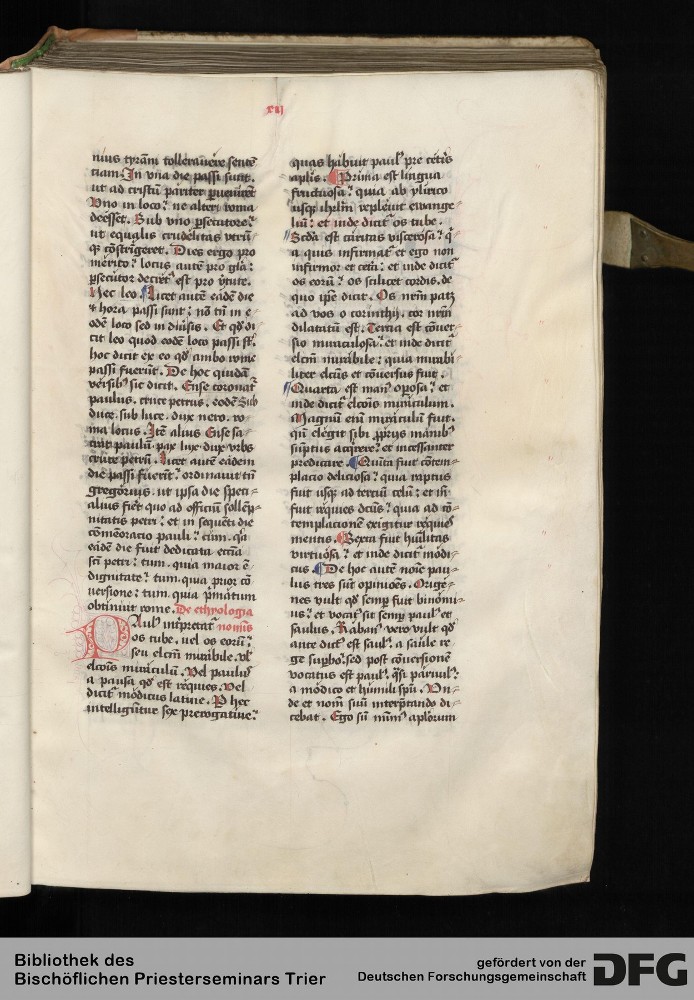 xij
nius tyrāni tolleravēre sentē
tiam. In vna die passi sunt.
ut ad cristū pariter pervenirēt
Vno in loco: ne alteri roma
deesset. Sub vno ꝑsecutore:
ut equalis crudelitas vtrū
qꝫ cōstrīgeret. Dies ergo pro
mērito: locus autē pro glīa:
ꝑsecutor decret9 est pro v̄tute.
Hec leo. Licet autē eādē die
et hora passi sunt: nō tn̄ in e
odē loco sed in diūsis. Et qd̓ di
cit leo quod eodē loco passi st̄.
hoc dicit ex eo qd̓ ambo rome
passi fuerūt. De hoc quidā
versib9 sic dicit. Ense coronat9
paulus. cruce petrus. eodē Sub
duce. sub luce. dux nero. ro
ma locus. Itē alius Ense sa
crāt paulū pax lux dux vrbs
cruce petrū. Licet autē eadem
die passi fuerīt: ordinauit tn̄
gregorius. ut ipsa die speci-
aliꝰ fiet quo ad officiū sollēp-
nitatis petri: et in sequēti die
cōmēoracio pauli: tum. qꝛ
eadē die fuit dedicata ecc̄ia
sc̄ti petri: tum. quia maior ē
dignitate: tum. quia prior cō
uersione: tum. quia p̄matum
obtinuit rome. De ethyologia
Paul9 īnterpretat᷑ nominis
os tube. uel os eorū:
seu elc̄m mirabile. vl̓
elc̄ois miraculū. Vel paulus
a pausa qd̓ est req̇es. Vel
dicit᷑ modicus latine. P̱ hec
intelligūtur sex prerogatiue:
quas habuit paul9 pre cet̓is
aplīs. Prima est lingua
fructuosa: quia ab ylirico
usqꝫ ihrlm̄ repleuit ewange-
liū: et inde dicit᷑ os tube.
Scd̓a est caritas viscerosa: q̄
a quis infirmat᷑ et ego non
infirmor et cet̓a: et inde dicit᷑
os eorū: os scilicet cordis. de
quo ip̄e dicit. Os nr̄m patꝫ
ad vos o corinthij. cor nr̄m
dilatatū est. Tercia est cōuer
sio miraculosa: et inde dicit᷑
elc̄m mirabile: quia mirabi
liter elc̄us et cōuersus fuit.
Quarta est man9 op̱osa: et
inde dicit᷑ elc̄ois miraculum.
Magnū em̄ miraculū fuit.
qn̄ elegit sibi ꝓprijs manib9
sūptus acq̇rere: et incessanter
predicare. Quīta fuit cōtem-
placio deliciosa: quia raptus
fuit usqꝫ ad terciū celū: et iō
fuit req̇es dc̄us: quia ad cō-
templacionē exigitur req̇es
mentis. Sexta fuit hūilitas
virtuosa: et inde dicit᷑ modi-
cus. De hoc autē noīe pau-
lus tres sūt opinioēs. Orige-
nes vult qd̓ semꝑ fuit binōmi-
us: et vocat9 sit semꝑ paul9 et
saulus. Raban9 vero vult qd̓
ante dict9 est saul9. a saule re
ge supbo: sed post cōuersionē
vocatus est paul9. q̄si paruul9:
a modico et humili sp̄u. Vn-
de et nom̄ suū interp̄tando di-
cebat. Ego sū nim̄9 apl̓orum
Bibliothek des
Bischöflichen Priesterseminars Trier
gefördert von der
Deutschen Forschungsgemeinschaft
DFG